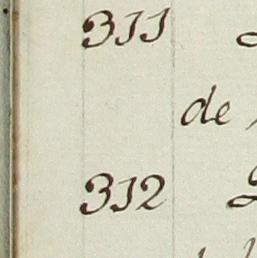 311
de
312